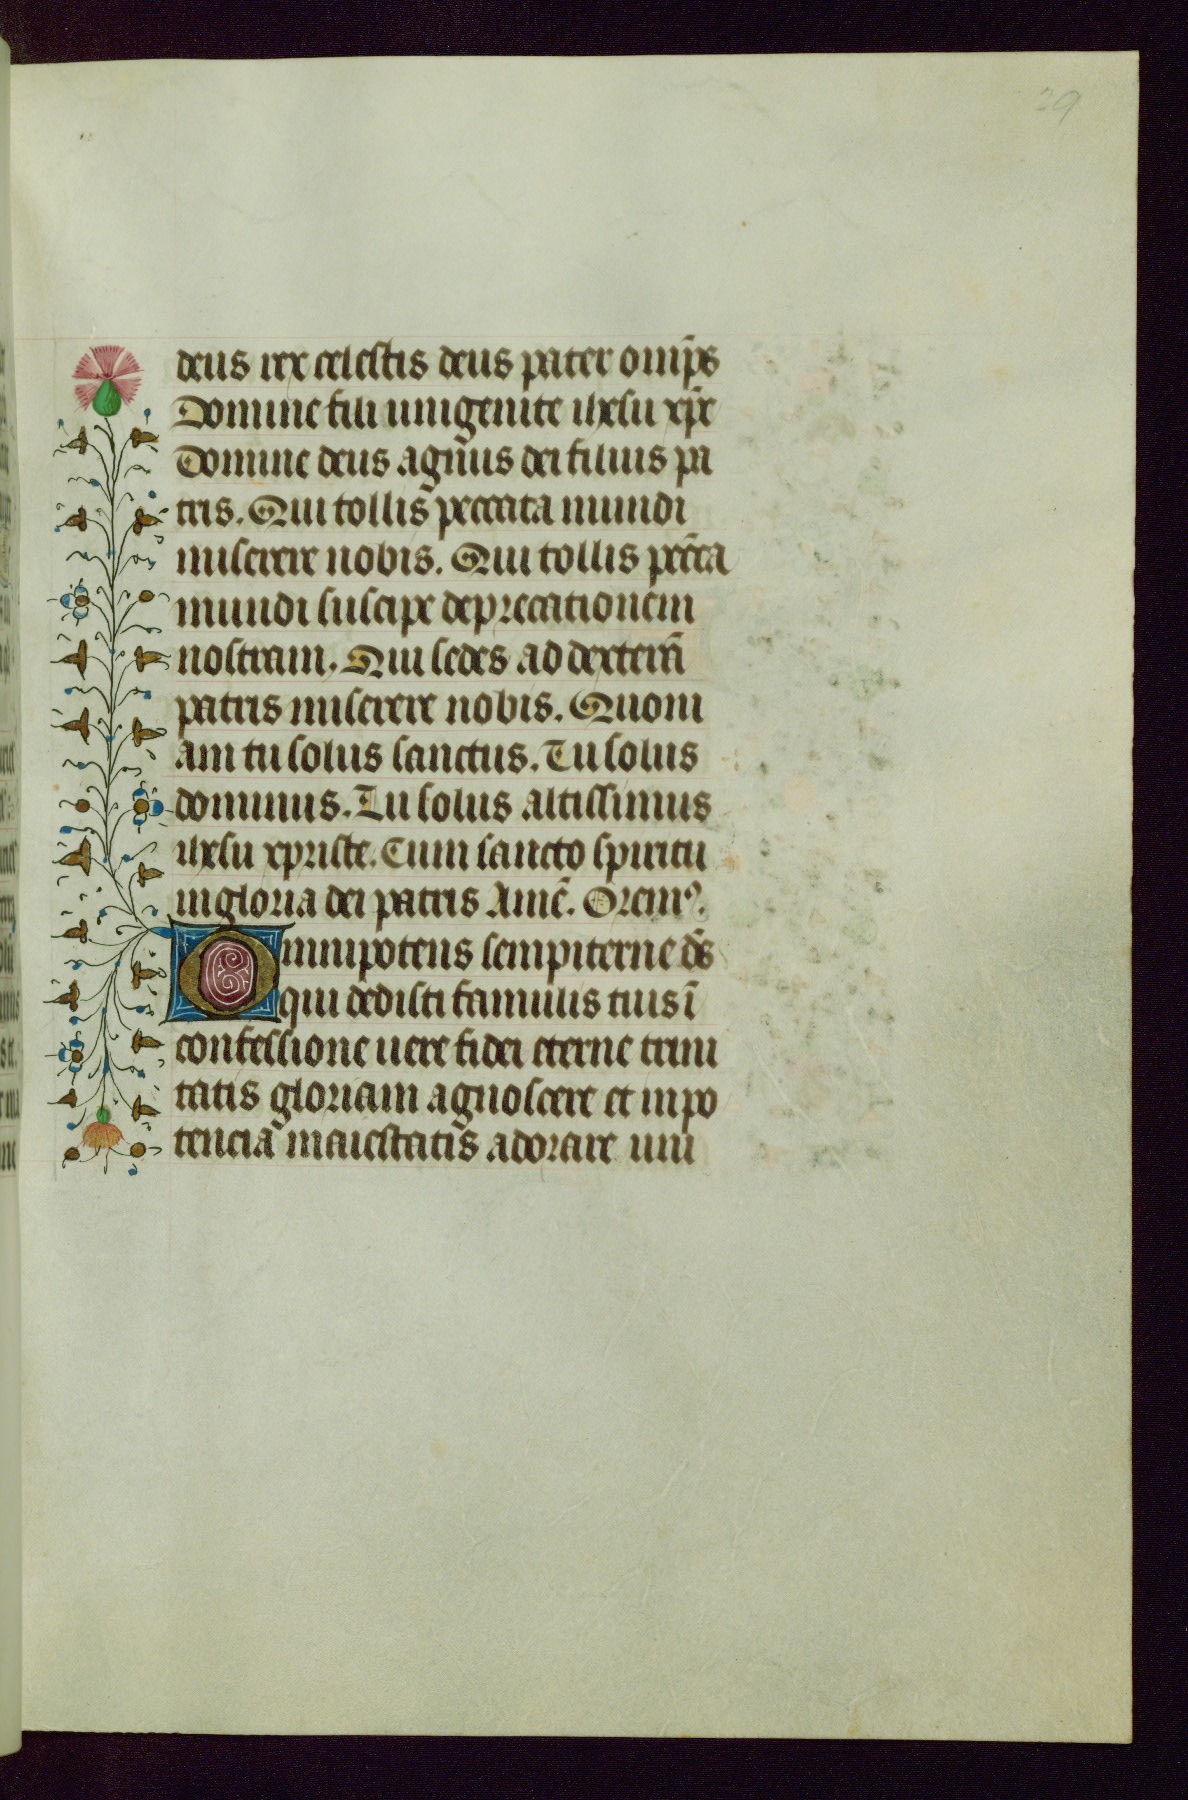 29
deus rex celestis deus pater om̅ps
Domine fili unigenite ihesu xp̅e
Domine deus agnus dei filius pa
tris. Qui tollis peccata mundi
miserere nobis. Qui tollis pc̅ca
mundi suscipe deprecationem
nostram. Qui sedes ad dextera̅
patris miserere nobis. Quoni
am tu solus sanctus. Tu solus
dominus. Tu solus altissimus
ihesu xpriste. Cum sancto spiritu
in gloria dei patris Ame̅. Oremꝰ.
Omnipotens sempiterne ds̅
qui dedisti famulis tuis i̅
confessione uere fidei eterne trini
tatis gloriam agnoscere et in po
tencia maiestatis adorare uni